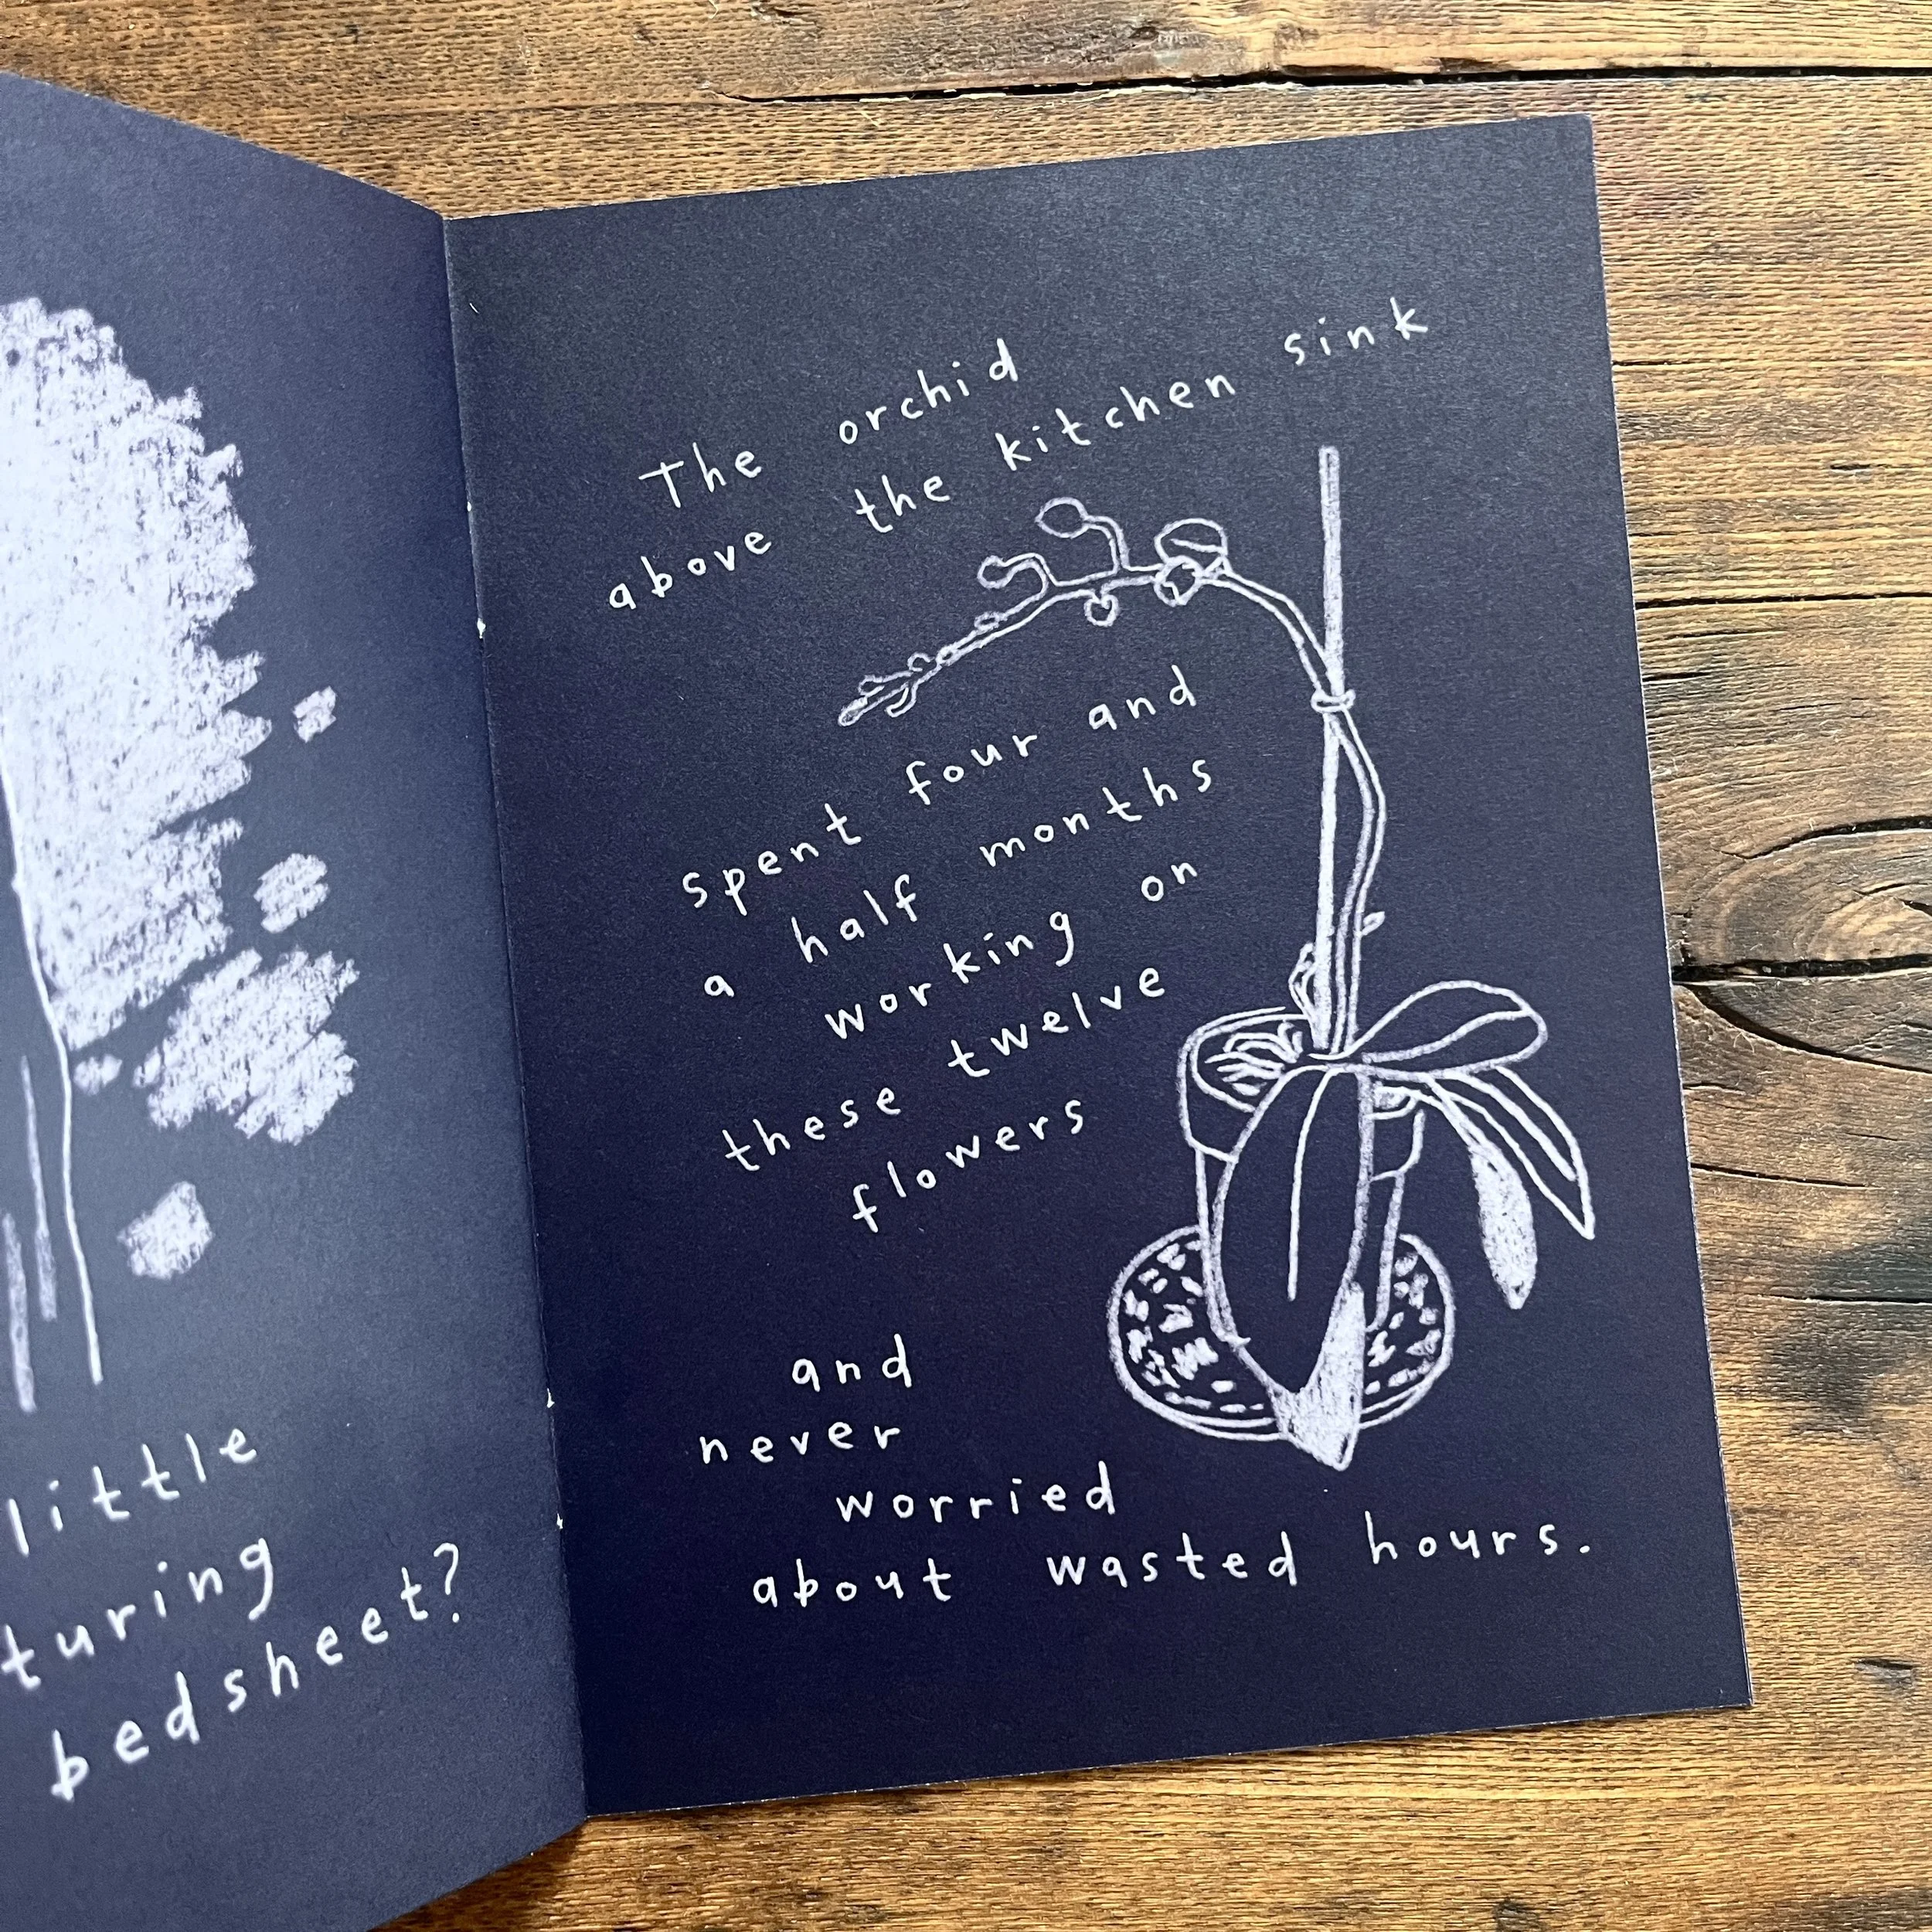 little
turing
bedsheet?
The orchid
above the kitchen sink
spent four and
a half months
working on
these twelve
flowers
and
never
worried
about wasted hours.